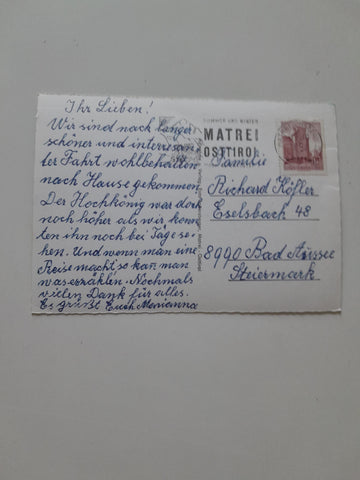 Ihr Lieben!
Wir sind nach langer
schöner und interresan-
ter Fahrt wohlbehalten
nach Hause gekommen.
Der Hochkönig war doch
noch höher als wir, konn
ten ihn noch bei Tage se-
hen. Und wenn man eine
Reise macht so kan man
was erzählen. Nochmals
vielen Dank für alles.
Es grüßt Euch Marianna
SOMMER UND WINTER
MATREI
OSTTIROL
Familie
Richard Höfler
Eselsbach 48
8990 Bad Aussee
Steiermark